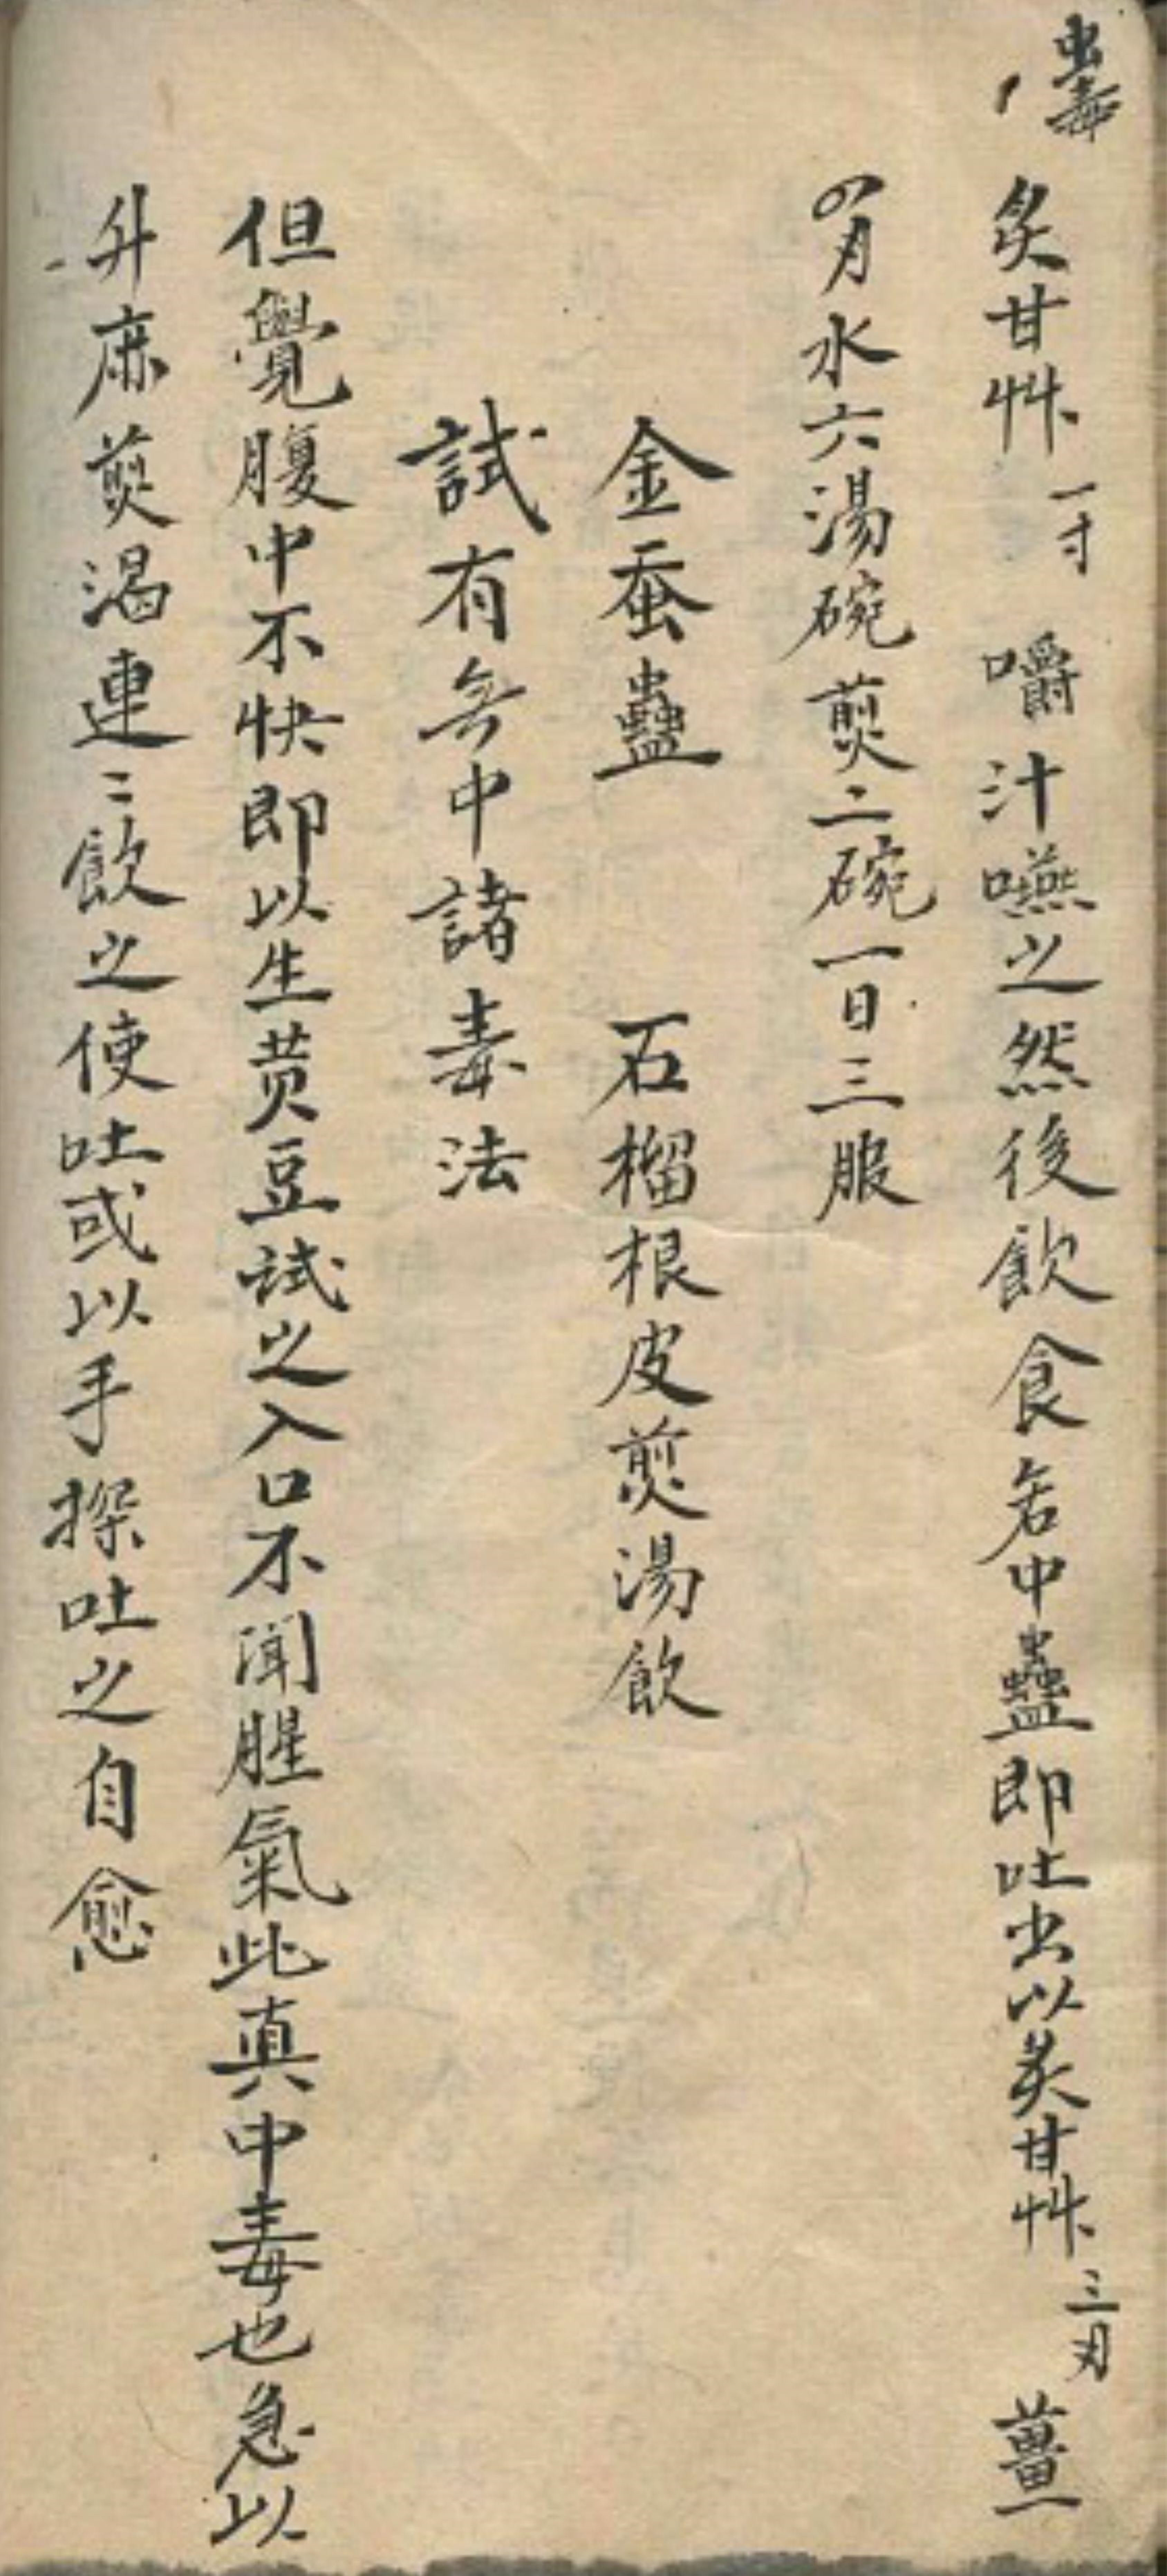 蠹
炙甘艸一寸 嚼汁嚥之然後飲食若中蠱即吐出以炙甘艸三刃 薑
四刃水六湯碗煎二碗一日三服
金蚕蠱 石榴根皮煎湯飲
試有無中諸毒法
但覺腹中不快即以生黄豆試之入口不聞腥氣此真中毒也急以
升麻煎湯連〻飲之使吐或以手探吐之自愈